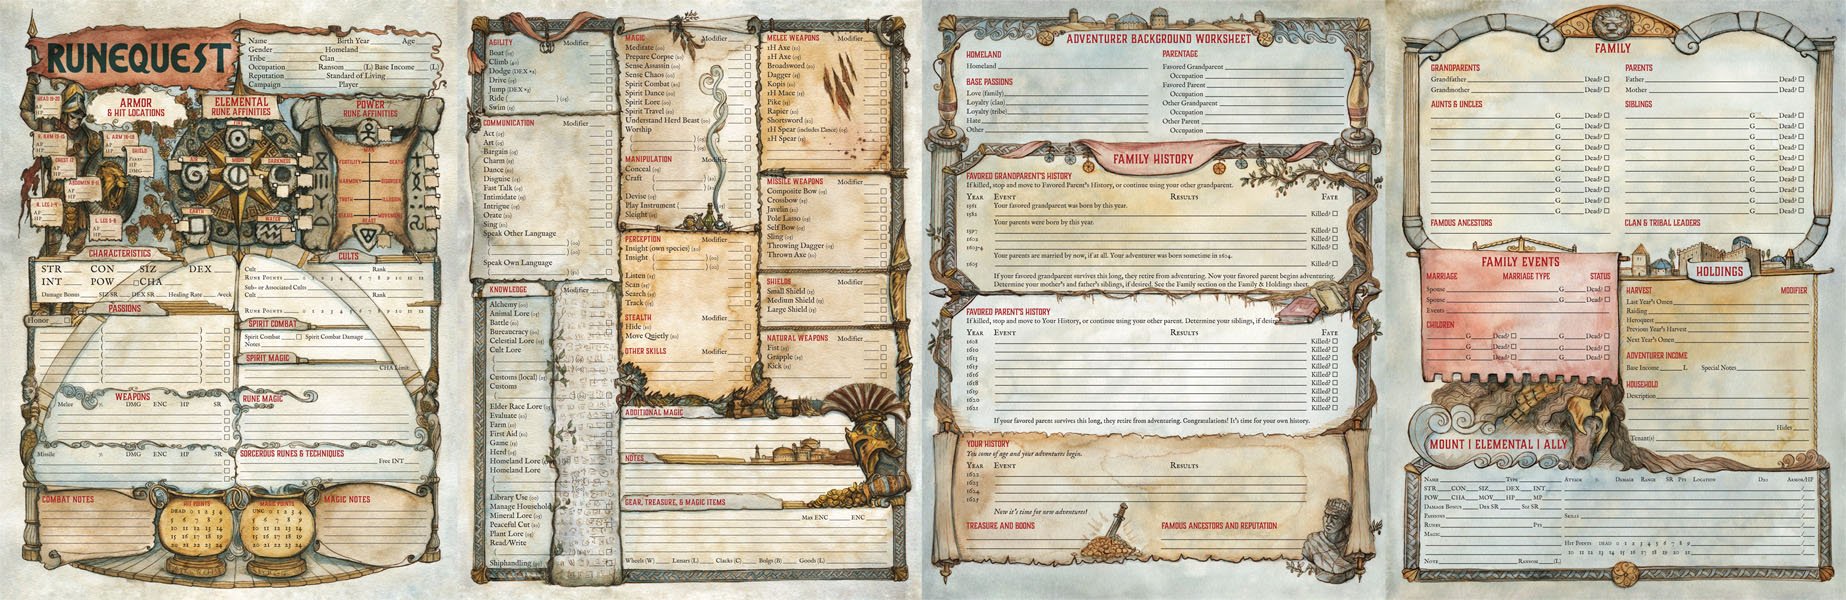 RUNEQUEST
Name Birth Year Age
Gender Homeland
Tribe Clan
Occupation Ransom (L) Base Income (L)
Reputation Standard of Living
Campaign Player
ARMOR
& HIT LOCATIONS
ELEMENTAL
RUNE AFFINITIES
POWER
RUNE AFFINITIES
HEAD 19-20
AP
HP
R. ARM 13-15
AP
HP
L. ARM 16-18
AP
HP
CHEST 12
AP
HP
SHIELD
Parry
HP
DMG
ABDOMEN 9-11
AP
HP
R. LEG 1-4
AP
HP
L. LEG 5-8
AP
HP
FIRE
AIR
MOON
DARKNESS
EARTH
WATER
MAN
FERTILITY DEATH
HARMONY DISORDER
TRUTH ILLUSION
STASIS MOVEMENT
BEAST
CHARACTERISTICS
STR CON SIZ DEX
INT POW CHA
Damage Bonus SIZ SR DEX SR Healing Rate /week
CULTS
Cult Rank
Rune Points 0 1 2 3 4 5 6 7 8 9 10 11 12
Sub- or Associated Cults
Cult Rank
Rune Points 0 1 2 3 4 5 6 7 8 9 10 11 12
PASSIONS
Honor
SPIRIT COMBAT
Spirit Combat Spirit Combat Damage
Notes
SPIRIT MAGIC
CHA Limit
WEAPONS
Melee % DMG ENC HP SR
RUNE MAGIC
Missile % DMG ENC HP SR
SORCEROUS RUNES & TECHNIQUES
Free INT
COMBAT NOTES
HIT POINTS
DEAD 0 1 2 3 4
5 6 7 8 9
10 11 12 13 14
15 16 17 18 19
20 21 22 23 24
MAGIC POINTS
UNC 0 1 2 3 4
5 6 7 8 9
10 11 12 13 14
15 16 17 18 19
20 21 22 23 24
MAGIC NOTES
AGILITY Modifier
Boat (05)
Climb (40)
Dodge (DEX ×2)
Drive (05)
Jump (DEX ×3)
Ride ( ) (05)
Swim (15)
COMMUNICATION Modifier
Act (05)
Art (05)
Bargain (05)
Charm (15)
Dance (10)
Disguise (05)
Fast Talk (05)
Intimidate (15)
Intrigue (05)
Orate (10)
Sing (10)
Speak Other Language
( ) (00)
( ) (00)
Speak Own Language
( ) (50)
KNOWLEDGE Modifier
Alchemy (00)
Animal Lore (05)
Battle (10)
Bureaucracy (00)
Celestial Lore (05)
Cult Lore
Customs (local) (25)
Customs
Elder Race Lore (05)
Evaluate (10)
Farm (10)
First Aid (10)
Game (15)
Herd (05)
Homeland Lore
Homeland Lore
Library Use (00)
Manage Household
Mineral Lore (05)
Peaceful Cut (10)
Plant Lore (05)
Read/Write
Shiphandling (00)
MAGIC Modifier
Meditate (00)
Prepare Corpse (10)
Sense Assassin (00)
Sense Chaos (00)
Spirit Combat (20)
Spirit Dance (00)
Spirit Lore (00)
Spirit Travel (10)
Understand Herd Beast (00)
Worship
( ) (05)
( ) (05)
MANIPULATION Modifier
Conceal (05)
Craft
( ) (10)
( ) (10)
Devise (05)
Play Instrument ( ) (05)
Sleight (05)
PERCEPTION Modifier
Insight (own species) (20)
Insight ( ) (00)
( ) (00)
Listen (25)
Scan (25)
Search (25)
Track (05)
STEALTH Modifier
Hide (10)
Move Quietly (10)
OTHER SKILLS Modifier
ADDITIONAL MAGIC
NOTES
GEAR, TREASURE, & MAGIC ITEMS
Max ENC ENC
Wheels (W) Lunars (L) Clacks (C) Bolgs (B) Goods (L)
MELEE WEAPONS Modifier
1H Axe (10)
2H Axe (05)
Broadsword (10)
Dagger (15)
Kopis (10)
1H Mace (15)
Pike (15)
Rapier (10)
Shortsword (10)
1H Spear (includes Lance) (05)
2H Spear (15)
MISSILE WEAPONS Modifier
Composite Bow (05)
Crossbow (25)
Javelin (10)
Pole Lasso (05)
Self Bow (05)
Sling (05)
Throwing Dagger (05)
Thrown Axe (10)
SHIELDS Modifier
Small Shield (15)
Medium Shield (15)
Large Shield (15)
NATURAL WEAPONS Modifier
Fist (25)
Grapple (25)
Kick (15)
ADVENTURER BACKGROUND WORKSHEET
HOMELAND
Homeland
BASE PASSIONS
Love (family)
Loyalty (clan)
Loyalty (tribe)
Hate
Other
PARENTAGE
Favored Grandparent
Occupation
Favored Parent
Occupation
Other Grandparent
Occupation
Other Parent
Occupation
FAMILY HISTORY
FAVORED GRANDPARENT'S HISTORY
If killed, stop and move to Favored Parent's History, or continue using your other grandparent.
Year Event Results Fate
1561 Your favored grandparent was born by this year.
1582 Killed?
Your parents were born by this year.
1597 Killed?
1602 Killed?
1603-4 Killed?
Your parents are married by now, if at all. Your adventurer was born sometime in 1604.
1605 Killed?
If your favored grandparent survives this long, they retire from adventuring. Now your favored parent begins adventuring.
Determine your mother's and father's siblings, if desired. See the Family section on the Family & Holdings sheet.
FAVORED PARENT'S HISTORY
If killed, stop and move to Your History, or continue using your other parent. Determine your siblings, if desi
Year Event Results Fate
1608 Killed?
1610 Killed?
1613 Killed?
1615 Killed?
1616 Killed?
1618 Killed?
1619 Killed?
1620 Killed?
1621 Killed?
If your favored parent survives this long, they retire from adventuring. Congratulations! It's time for your own history.
YOUR HISTORY
You come of age and your adventures begin.
Year Event Results
1622
1623
1624
1625
Now it's time for new adventures!
TREASURE AND BOONS
FAMOUS ANCESTORS AND REPUTATION
FAMILY
GRANDPARENTS
Grandfather Dead?
Grandmother Dead?
PARENTS
Father Dead?
Mother Dead?
AUNTS & UNCLES
G Dead?
G Dead?
G Dead?
G Dead?
G Dead?
G Dead?
G Dead?
G Dead?
G Dead?
G Dead?
G Dead?
SIBLINGS
G Dead?
G Dead?
G Dead?
G Dead?
G Dead?
G Dead?
G Dead?
G Dead?
G Dead?
G Dead?
G Dead?
FAMOUS ANCESTORS
CLAN & TRIBAL LEADERS
FAMILY EVENTS
MARRIAGE MARRIAGE TYPE STATUS
Spouse G
Spouse G
Events
CHILDREN
G Dead? G Dead?
G Dead? G Dead?
G Dead? G Dead?
HOLDINGS
HARVEST MODIFIER
Last Year's Omen
Raiding
Heroquest
Previous Year's Harvest
Next Year's Omen
ADVENTURER INCOME
Base Income L Special Notes
HOUSEHOLD
Description
Hides
Tenant(s)
MOUNT | ELEMENTAL | ALLY
Name Type
STR CON SIZ DEX INT
POW CHA MOV HP MP
Damage Bonus Dex SR Siz SR
Passions
Runes Pts
Magic
Note Ransom (L)
Attack % Damage Range SR Pts Location D20 Armor/HP
Skills
Hit Points DEAD 0 1 2 3 4 5 6 7 8 9
10 11 12 13 14 15 16 17 18 19 20 21